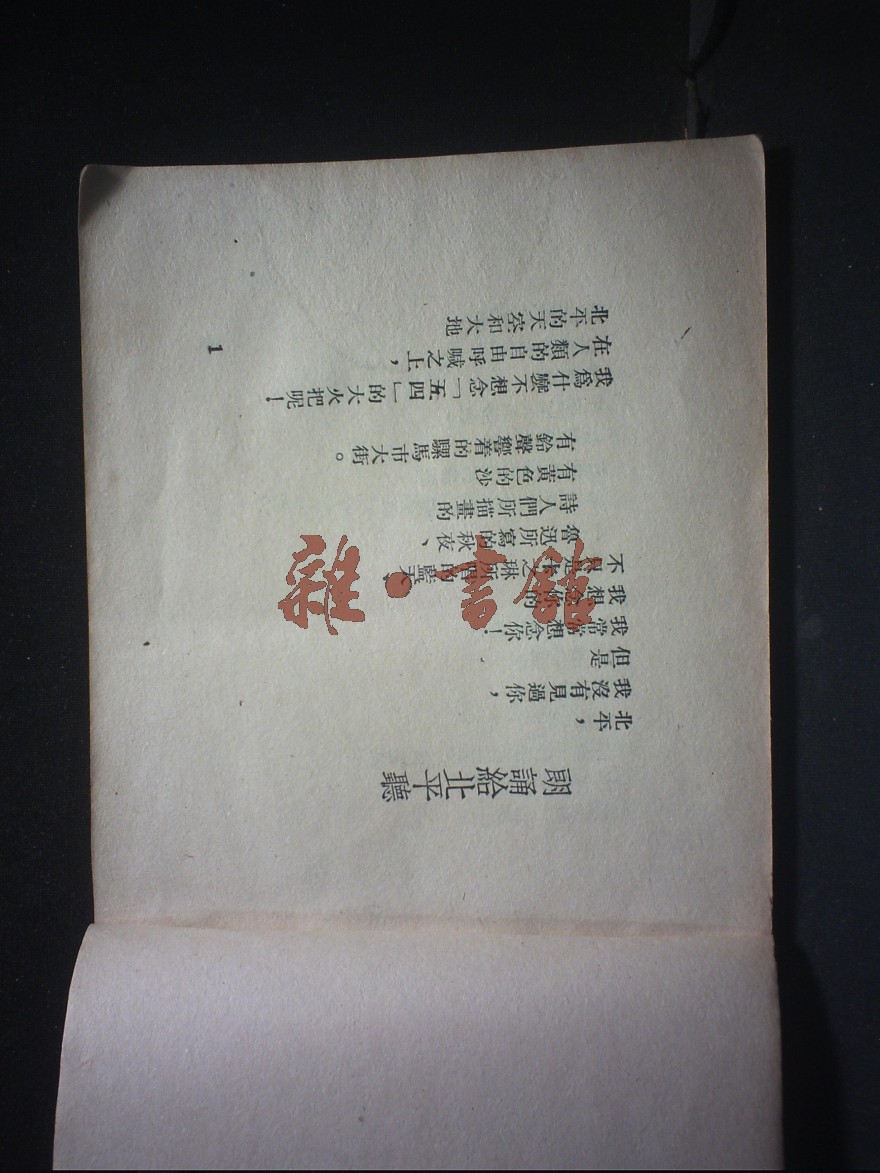 朗誦給北平聽
北平，
我沒有見過你，
但是
我常常想念你！
我想念你的
不是之琳所的藍天、
魯迅所寫的秋夜、
詩人們所描畫的
有黃色的沙
有鈴聲響着的騾馬市大街。
我爲什麼不想念「五四」的大火把呢！
在人類的自由呼喊之上，
北平的天空和大地
1
雜·書館